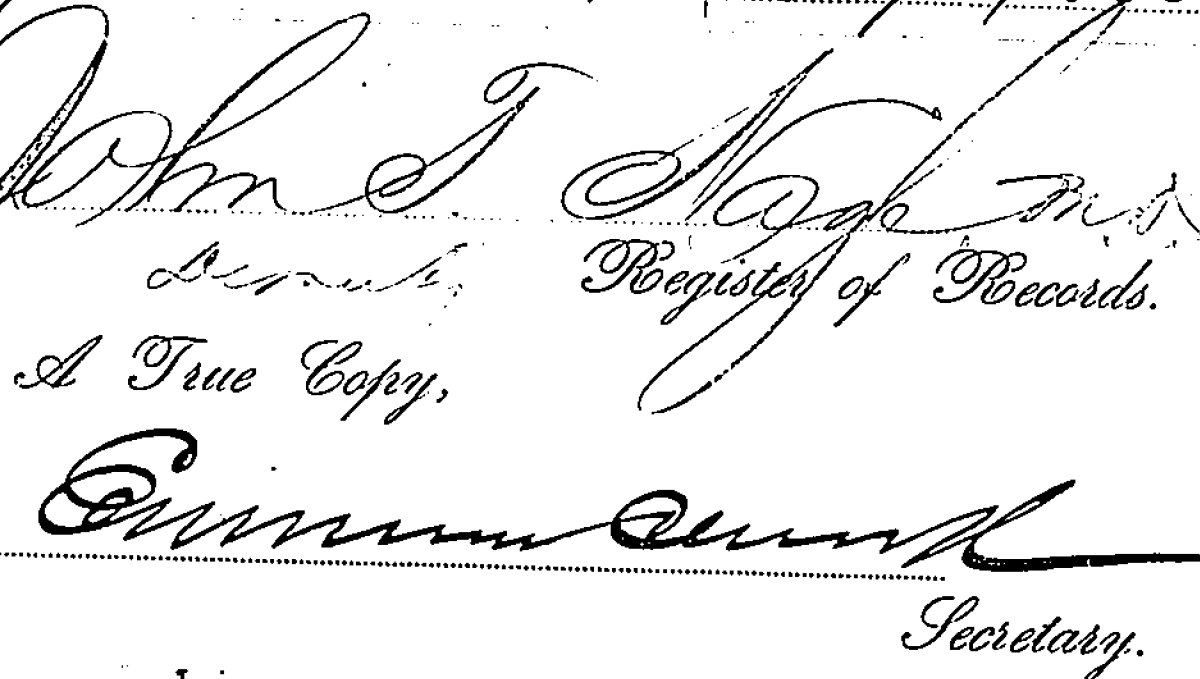 John T. Nagle M.D.
Deputy Register of Records.
A True Copy,
Secretary.